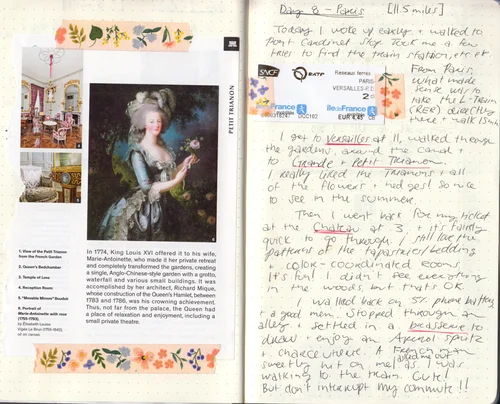 PETIT TRIANON
1. View of the Petit Trianon
from the French Garden
2. Queen's Bedchamber
3. Temple of Love
4. Reception Room
5. "Movable Mirrors" Boudoir
6. Portrait of
Marie-Antoinette with rose
by Élisabeth Louise
Vigée Le Brun
oil on canvas
In 1774, King Louis XVI offered it to his wife,
Marie-Antoinette, who made it her private retreat
and completely transformed the gardens, creating
a single, Anglo-Chinese-style garden with a grotto,
waterfall and various small buildings. It was
accomplished by her architect, Richard Mique,
whose construction of the Queen's Hamlet, between
1783 and 1786, was his crowning achievement.
Thus, not far from the palace, the Queen had
a place of relaxation and enjoyment, including a
small private theatre.
Day 8 - Paris [11.5 miles]
Today I woke up early + walked to
Pont Cardinal stop. Took me a few
tries to find the train station, etc.
SNCF
RATP
Réseaux ferrés
PARIS
VERSAILLES-R.D
2
île de France
EUR
From Paris,
what made
sense was to
take the L-Train
(RER) directly
there + walk 15m.
I got to Versailles at 11, walked through
the gardens, around the canal +
to Grande + Petit Trianon.
I really liked the Trianons + all
of the flowers + hedges! So nice
to see in the summer.
Then I went back for my ticket
at the Chateau at 3, + it's fairly
quick to go through. I still like the
patterns of the tapestries/bedding
+ color-coordinated rooms.
It's fun! I didn't see everything
in the woods, but that's OK.
I walked back on 5% phone battery
+ a good men. Stopped through an
alley + settled in a brasserie to
draw + enjoy an Aperol spritz
+ charcuterie. A French man
sweetly hit on me / asked me out as I was
walking to the train. Cute!
But don't interrupt my commute!!